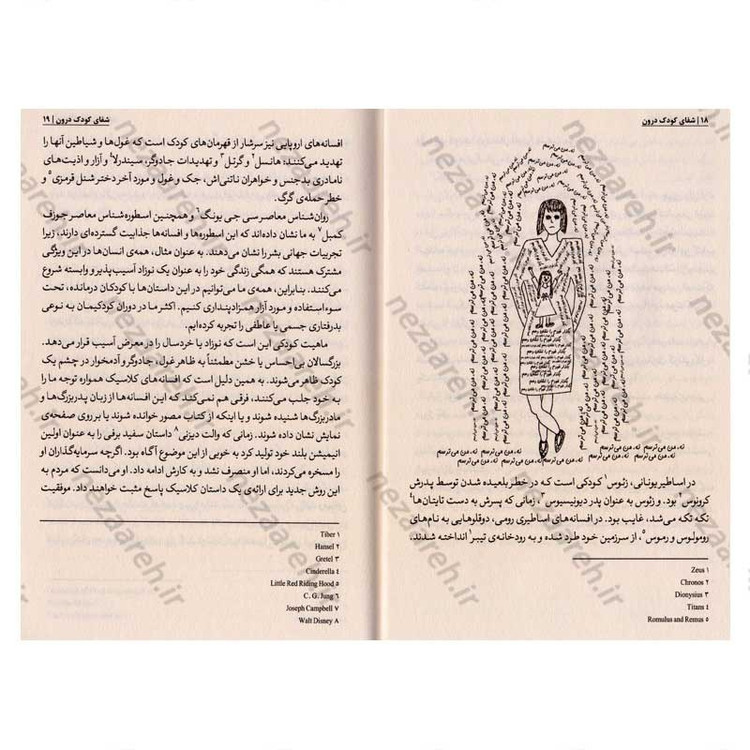 ۱۸ | شفای کودک درون
نه، من می‌ترسم
بگذار خودم را نشانت بدهم
نه، من می‌ترسم نه، من می‌ترسم نه، من می‌ترسم
در اساطیر یونانی، زئوس۱ کودکی است که در خطر بلعیده شدن توسط پدرش
کرونوس۲ بود. و زئوس به عنوان پدر دیونیسیوس۳، زمانی که پسرش به دست تایتان‌ها۴
تکه تکه می‌شد، غایب بود. در افسانه‌های اساطیری رومی، دوقلوهایی به نام‌های
رومولوس و رموس۵، از سرزمین خود طرد شده و به رودخانه‌ی تیبر۱ انداخته شدند.
Zeus ۱
Chronos ۲
Dionysius ۳
Titans ۴
Romulus and Remus ۵
شفای کودک درون | ۱۹
افسانه‌های اروپایی نیز سرشار از قهرمان‌های کودک است که غول‌ها و شیاطین آنها را
تهدید می‌کنند: هانسل۲ و گرتل۳ و تهدیدات جادوگر، سیندرلا۴ و آزار و اذیت‌های
نامادری بدجنس و خواهران ناتنی‌اش، جک و غول و مورد آخر دختر شنل قرمزی۵ و
خطر حمله‌ی گرگ.
روان‌شناس معاصر سی جی یونگ۶ و همچنین اسطوره‌شناس معاصر جوزف
کمبل۷ به ما نشان داده‌اند که این اسطوره‌ها و افسانه‌ها جذابیت گسترده‌ای دارند، زیرا
تجربیات جهانی بشر را نشان می‌دهند. به عنوان مثال، همه‌ی انسان‌ها در این ویژگی
مشترک هستند که همگی زندگی خود را به عنوان یک نوزاد آسیب‌پذیر و وابسته شروع
می‌کنند. بنابراین، همه‌ی ما می‌توانیم در این داستان‌ها با کودکان درمانده، تحت
سوءاستفاده و مورد آزار همزادپنداری کنیم. اکثر ما در دوران کودکیمان به نوعی
بدرفتاری جسمی یا عاطفی را تجربه کرده‌ایم.
ماهیت کودکی این است که نوزاد یا خردسال را در معرض آسیب قرار می‌دهد.
بزرگسالان بی‌احساس یا خشن مطمئناً به ظاهر غول، جادوگر و آدمخوار در چشم یک
کودک ظاهر می‌شوند. به همین دلیل است که افسانه‌های کلاسیک همواره توجه ما را
به خود جلب می‌کنند، فرقی هم نمی‌کند که این افسانه‌ها از زبان پدربزرگ‌ها و
مادربزرگ‌ها شنیده شوند و یا اینکه از کتاب مصور خوانده شوند یا بر روی صفحه‌ی
نمایش نشان داده شوند. زمانی که والت دیزنی۸ داستان سفید برفی را به عنوان اولین
انیمیشن بلند خود تولید کرد به خوبی از این موضوع آگاه بود. اگرچه سرمایه‌گذاران او
را مسخره می‌کردند، اما او منصرف نشد و به کارش ادامه داد. او می‌دانست که مردم به
این روش جدید برای ارائه‌ی یک داستان کلاسیک پاسخ مثبت خواهند داد. موفقیت
Tiber ۱
Hansel ۲
Gretel ۳
Cinderella ۴
Little Red Riding Hood ۵
C. G. Jung ۶
Joseph Campbell ۷
Walt Disney ۸
nezaareh.ir